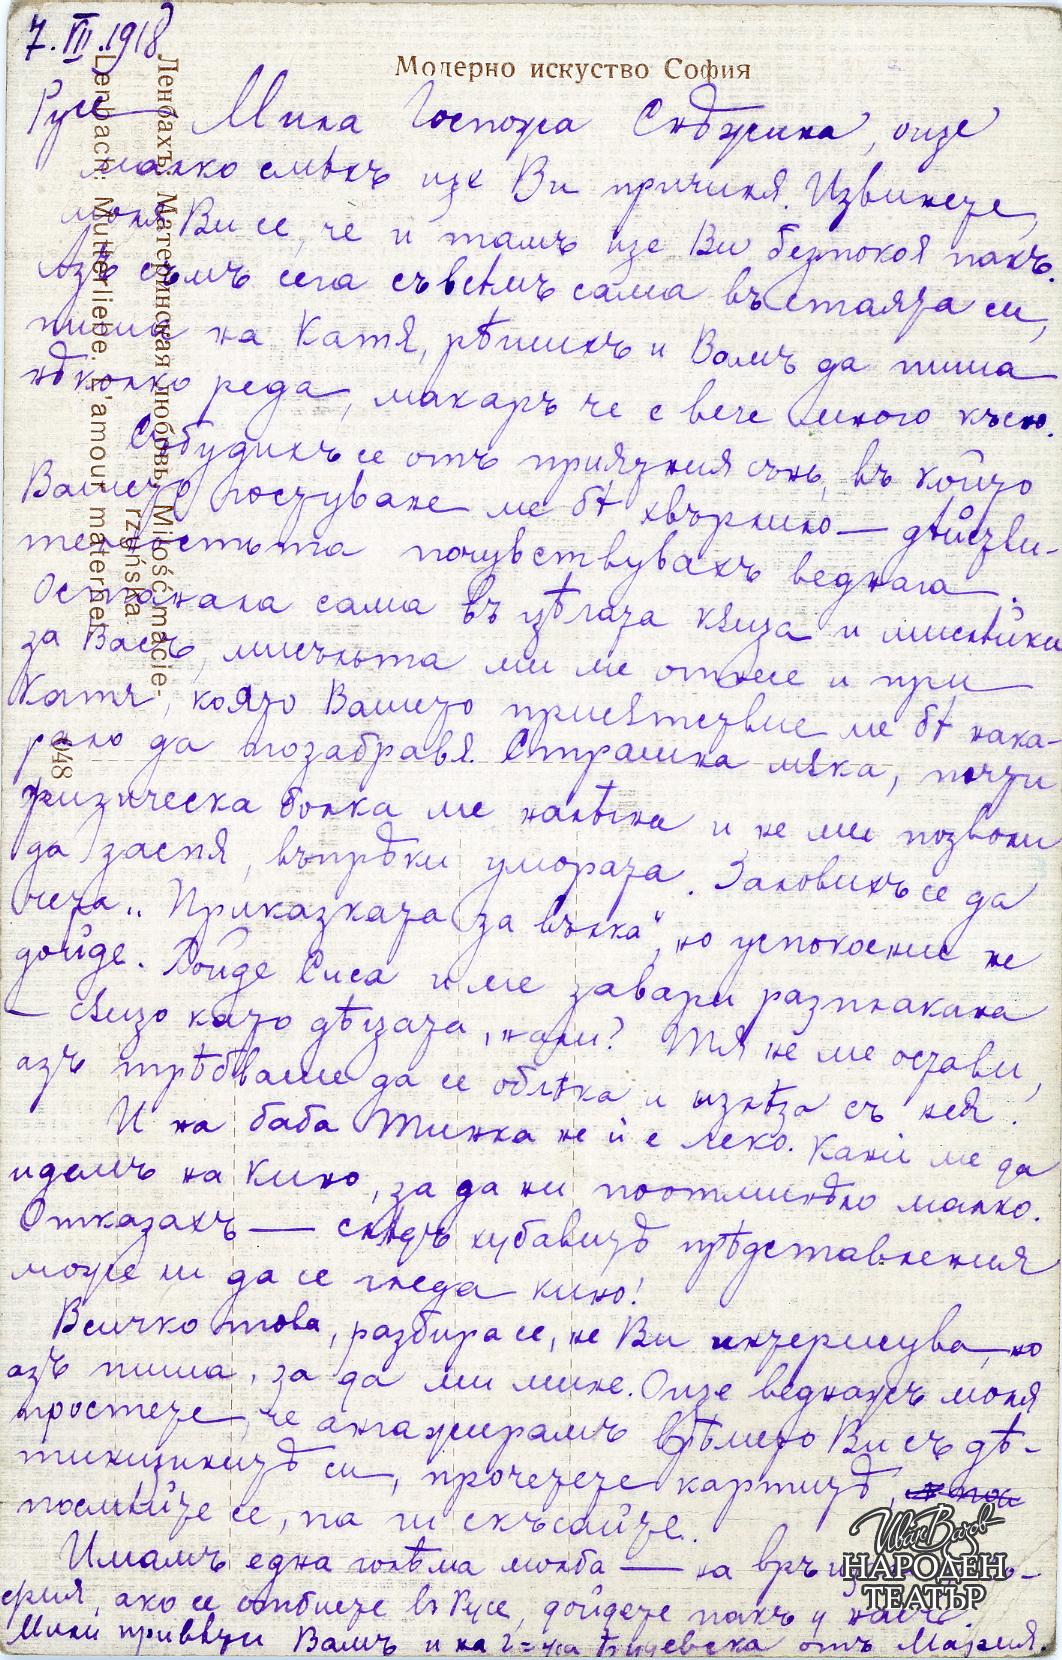 7.III.1918
Модерно искуство София
Русе Мила Госпожа Снѣжина, още
малко смѣхъ ще Ви причиня. Извинете,
моля Ви се, че и тамъ ще Ви безпокоя пакъ.
Азъ съмъ сега съвсѣмъ сама въ стаята си,
пиша на Катя, рѣшихъ и Вамъ да пиша
нѣколко реда, макаръ че е вече много късно.
Събудихъ се отъ приятния сънь, въ който
Вашето гостуване ме бѣ хвърлило — дѣйстви-
телностьта почувствувахъ веднага.
Останала сама въ цѣлата кѫща и мислѣйки
за Васъ, мисъльта ми ме отнесе и при
Катя, която Вашето присѫтствие ме бѣ нака-
рало да позабравя. Страшна мѫка, почти
физическа болка ме налѣгна и не ми позволи
да заспя, въпрѣки умората. Заловихъ се да
чета „Приказката за вълка“, но успокоение не
дойде. Дойде Сиса и ме завари разплакана
— сѫщо като дѣцата, нали? Тя не ме остави,
азъ трѣбваше да се облѣка и излѣза съ нея.
И на баба Тинка не ѝ е леко. Кани ме да
идемъ на кино, за да ни поотмилѣло малко.
Отказахъ — слѣдъ хубавитѣ прѣдставления
може ли да се гледа кино!
Всичко това, разбира се, не Ви интересува, но
азъ пиша, за да ми мине. Още веднажъ моля
простете, че ангажирамъ врѣмето Ви съ дѣ-
тинщинитѣ си, прочетете картитѣ,
посмѣйте се, па ги скъсайте.
Имамъ една голѣма молба — на връщане
ако се отбиете въ Русе, дойдете пакъ у насъ.
Мили привѣти Вамъ и на г-жа Будевска отъ Мария.
Ленбахъ: Материнская любовь. Miłość macie-
rzyńska.
Lenbach: Mutterliebe. L'amour maternel.
048
Иван Вазов
НАРОДЕН
ТЕАТЪР